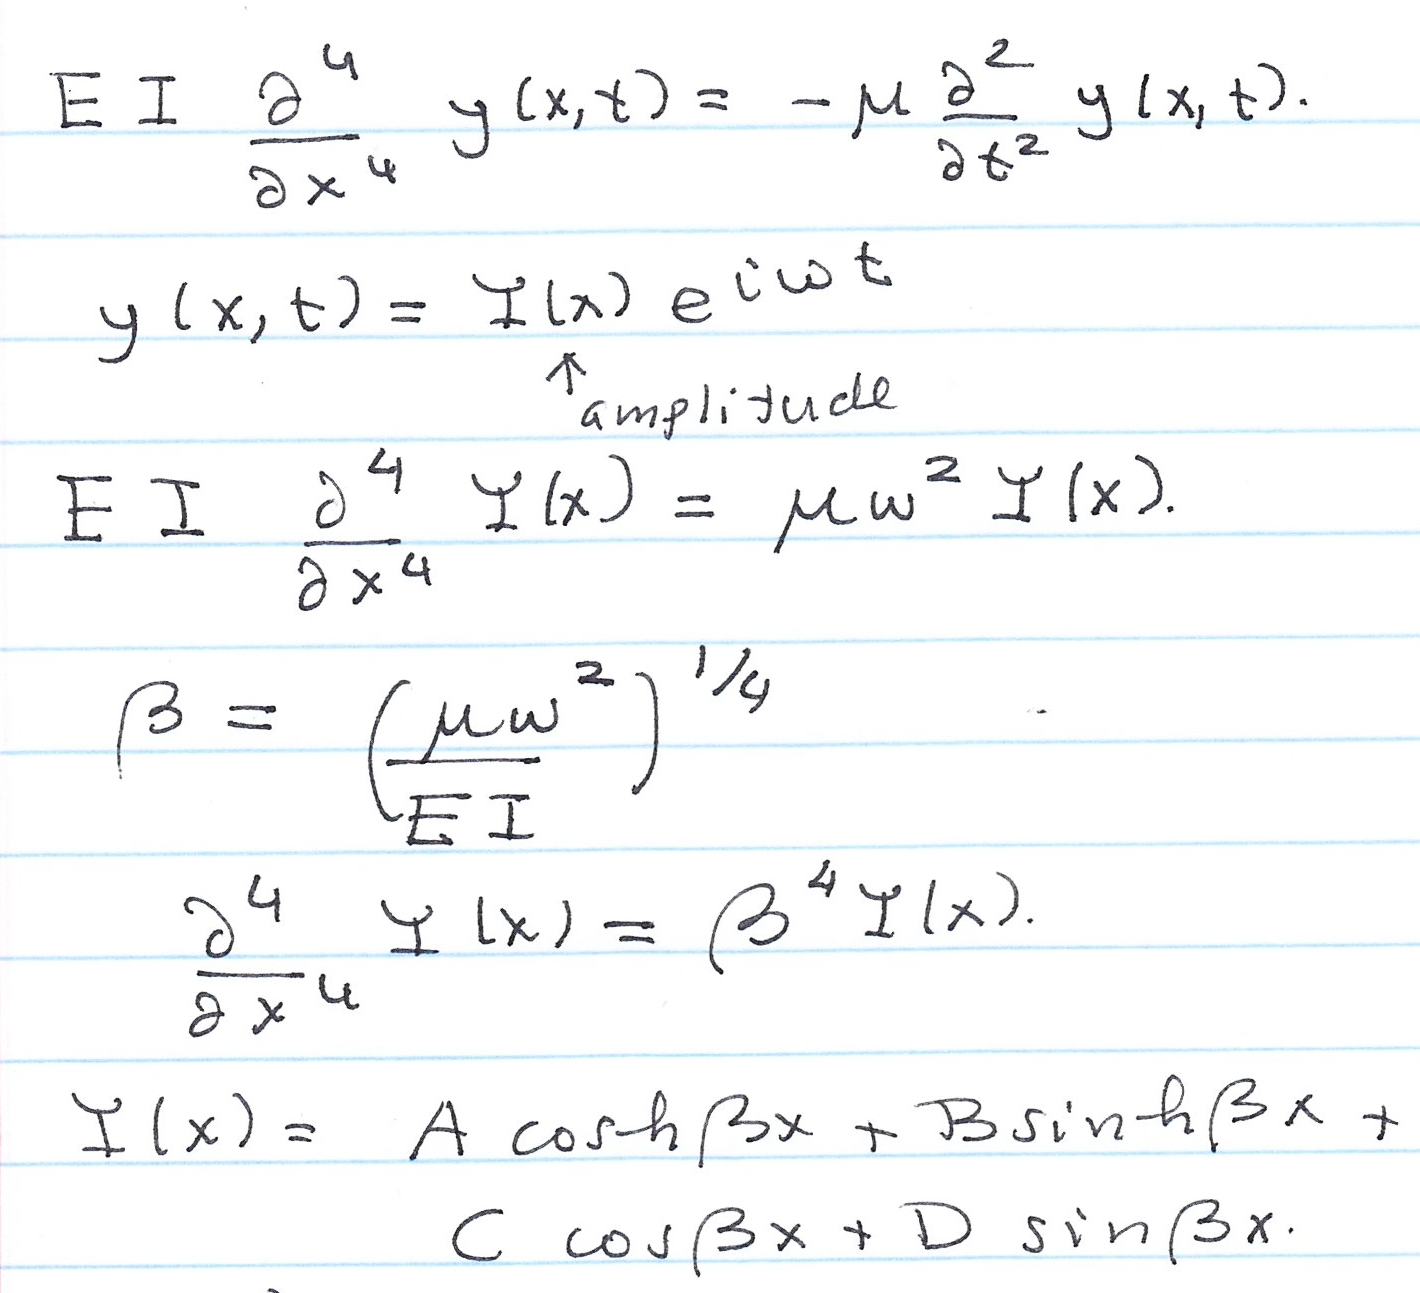 E I ∂⁴/∂x⁴ y(x,t) = -μ ∂²/∂t² y(x,t).
y(x,t) = Y(x) e^{iωt}
↑
amplitude
E I ∂⁴/∂x⁴ Y(x) = μω² Y(x).
β = (μω²/EI)^{1/4}
∂⁴/∂x⁴ Y(x) = β⁴ Y(x).
Y(x) = A cosh βx + B sinh βx +
C cos βx + D sin βx.